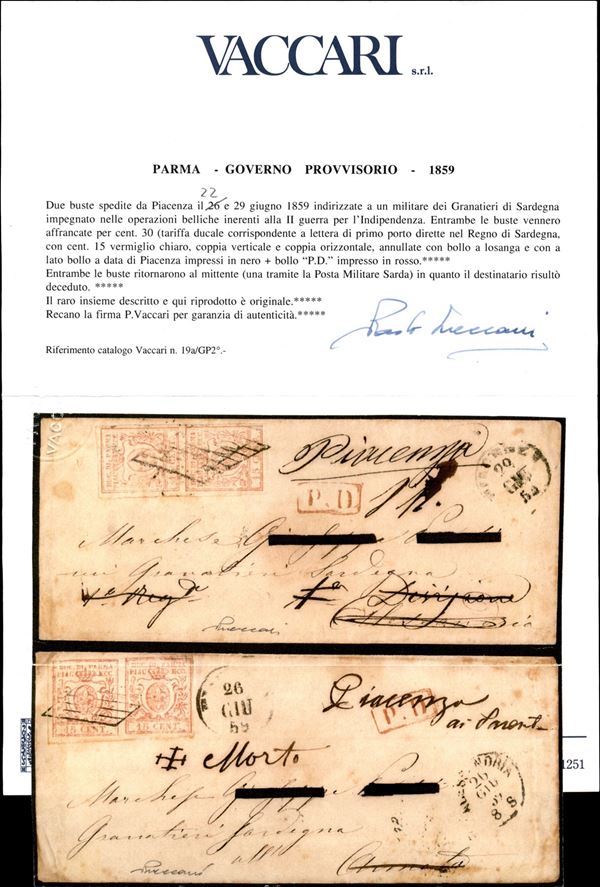 VACCARI s.r.l.
PARMA - GOVERNO PROVVISORIO - 1859
22
Due buste spedite da Piacenza il 26 e 29 giugno 1859 indirizzate a un militare dei Granatieri di Sardegna
impegnato nelle operazioni belliche inerenti alla II guerra per l'Indipendenza. Entrambe le buste vennero
affrancate per cent. 30 (tariffa ducale corrispondente a lettera di primo porto dirette nel Regno di Sardegna,
con cent. 15 vermiglio chiaro, coppia verticale e coppia orizzontale, annullate con bollo a losanga e con a
lato bollo a data di Piacenza impressi in nero + bollo "P.D." impresso in rosso.*****
Entrambe le buste ritornarono al mittente (una tramite la Posta Militare Sarda) in quanto il destinatario risultò
deceduto. *****
Il raro insieme descritto e qui riprodotto è originale.*****
Recano la firma P.Vaccari per garanzia di autenticità.*****
Riferimento catalogo Vaccari n. 19a/GP2°.-
Piacenza
P.D
GIU
59
Marchese
Granatieri Sardegna
1a
Divisione
DI PARMA
PIAC. ECC.
15 CENT.
15 CENT.
26
GIU
59
Piacenza
P.D
Morto
26
GIU
Marchese
Granatieri Sardegna
all'
Armata
1251